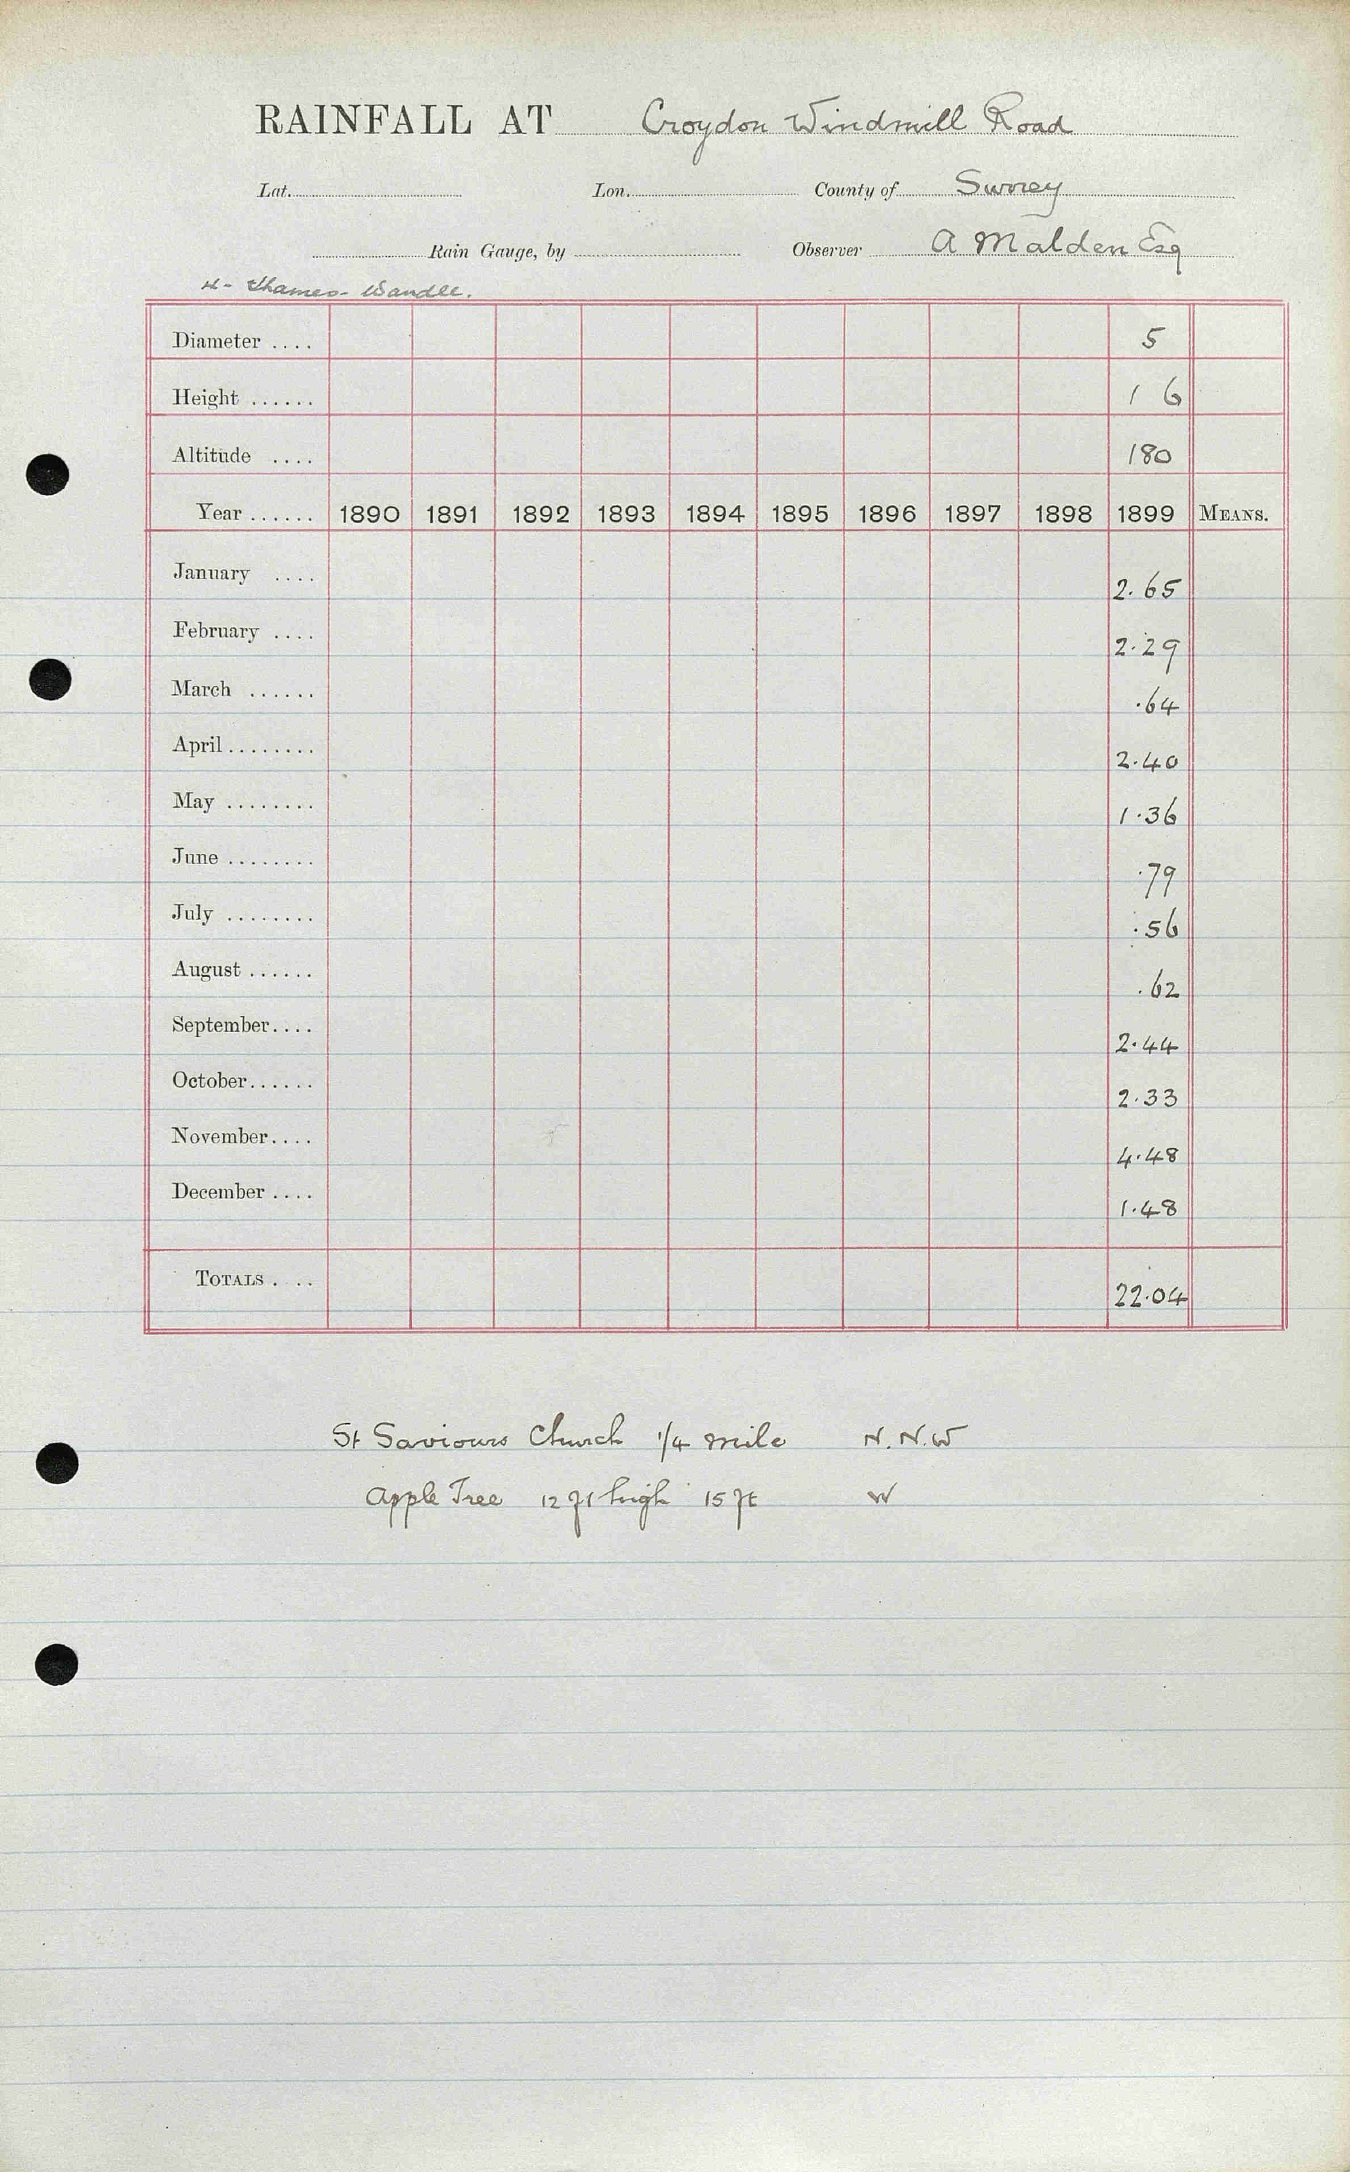 RAINFALL AT Croydon Windmill Road
Lat. Lon. County of Surrey
Rain Gauge, by Observer A Malden Esq
H - Thames - Wandle.
Diameter .... 5
Height ...... 1 6
Altitude .... 180
Year ...... 1890 1891 1892 1893 1894 1895 1896 1897 1898 1899 MEANS.
January .... 2.65
February .... 2.29
March ...... .64
April ........ 2.40
May ........ 1.36
June ........ .79
July ........ .56
August ...... .62
September.... 2.44
October...... 2.33
November.... 4.48
December .... 1.48
TOTALS . .. 22.04
St Saviours Church 1/4 mile N.N.W
Apple Tree 12 ft high 15 ft W